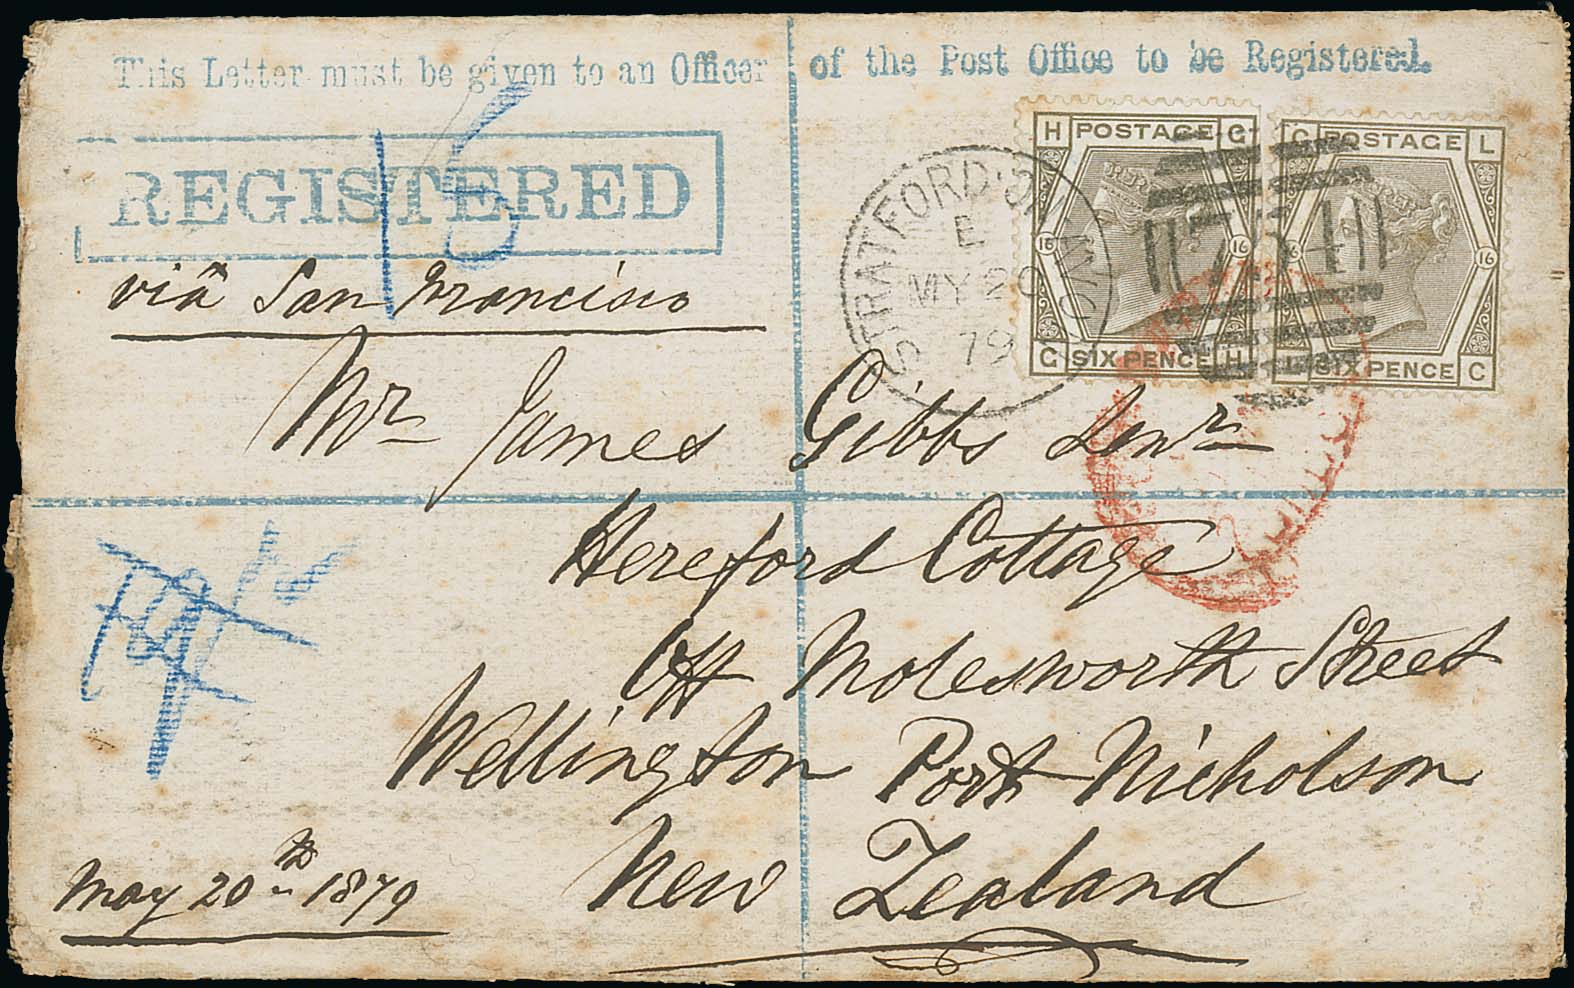 This Letter must be given to an Officer of the Post Office to be Registered.
REGISTERED
via San Francisco
STRATFORD
E
MY 20
79
H POSTAGE G
16 16
G SIX PENCE H
G POSTAGE L
16 16
L SIX PENCE C
Mr James Gibbs Senr
Hereford Cottage
Off Molesworth Street
Wellington Port Nicholson
New Zealand
May 20th 1879